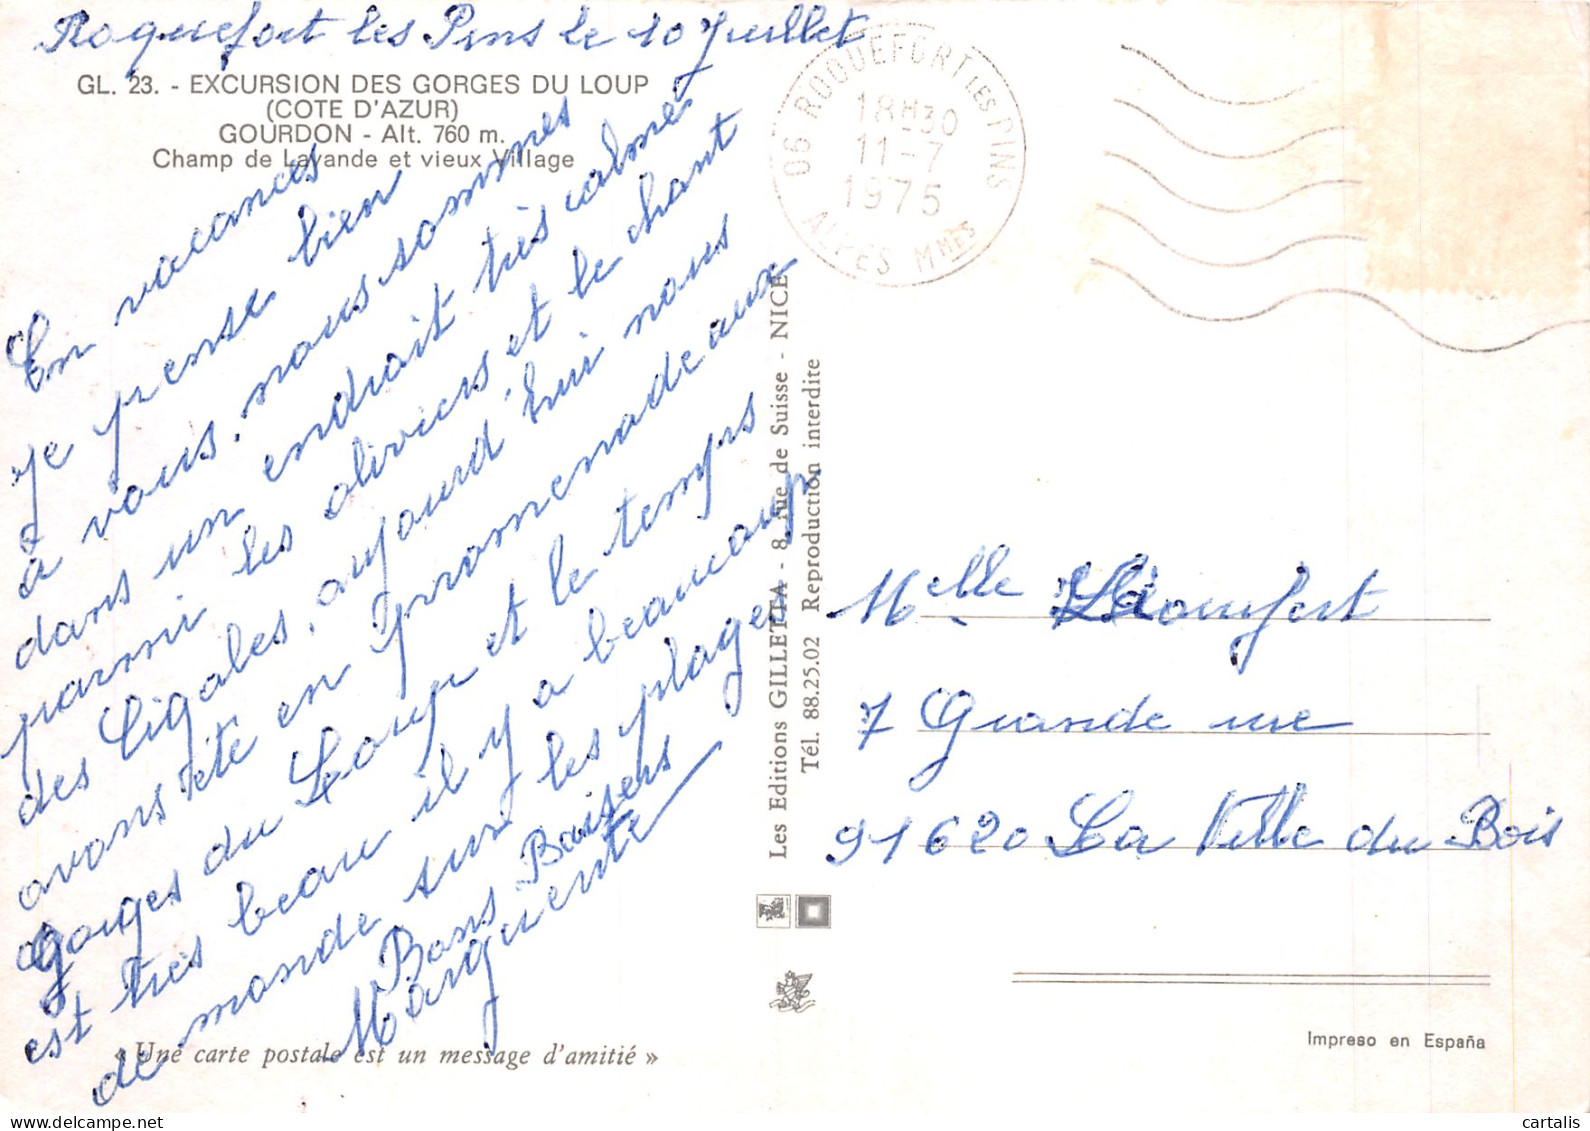 Roquefort les Pins le 10 Juillet
GL. 23. - EXCURSION DES GORGES DU LOUP
(COTE D'AZUR)
GOURDON - Alt. 760 m.
Champ de Lavande et vieux Village
En vacances
je pense bien
à vous, nous sommes
dans un endroit très calme
parmi les oliviers et le chant
des Cigales, aujourd'hui nous
avons été en promenade aux
Gorges du Loup et le temps
est très beau il y a beaucoup
de monde sur les plages
Bons Baisers
Marguerite
« Une carte postale est un message d'amitié »
Les Editions GILLETTA - 8, rue de Suisse - NICE
Tél. 88.25.02 Reproduction interdite
06 ROQUEFORT LES PINS
18H30
11-7
1975
ALPES MMES
Melle
7 Grande rue
91620 La Ville du Bois
Impreso en España
cartalis